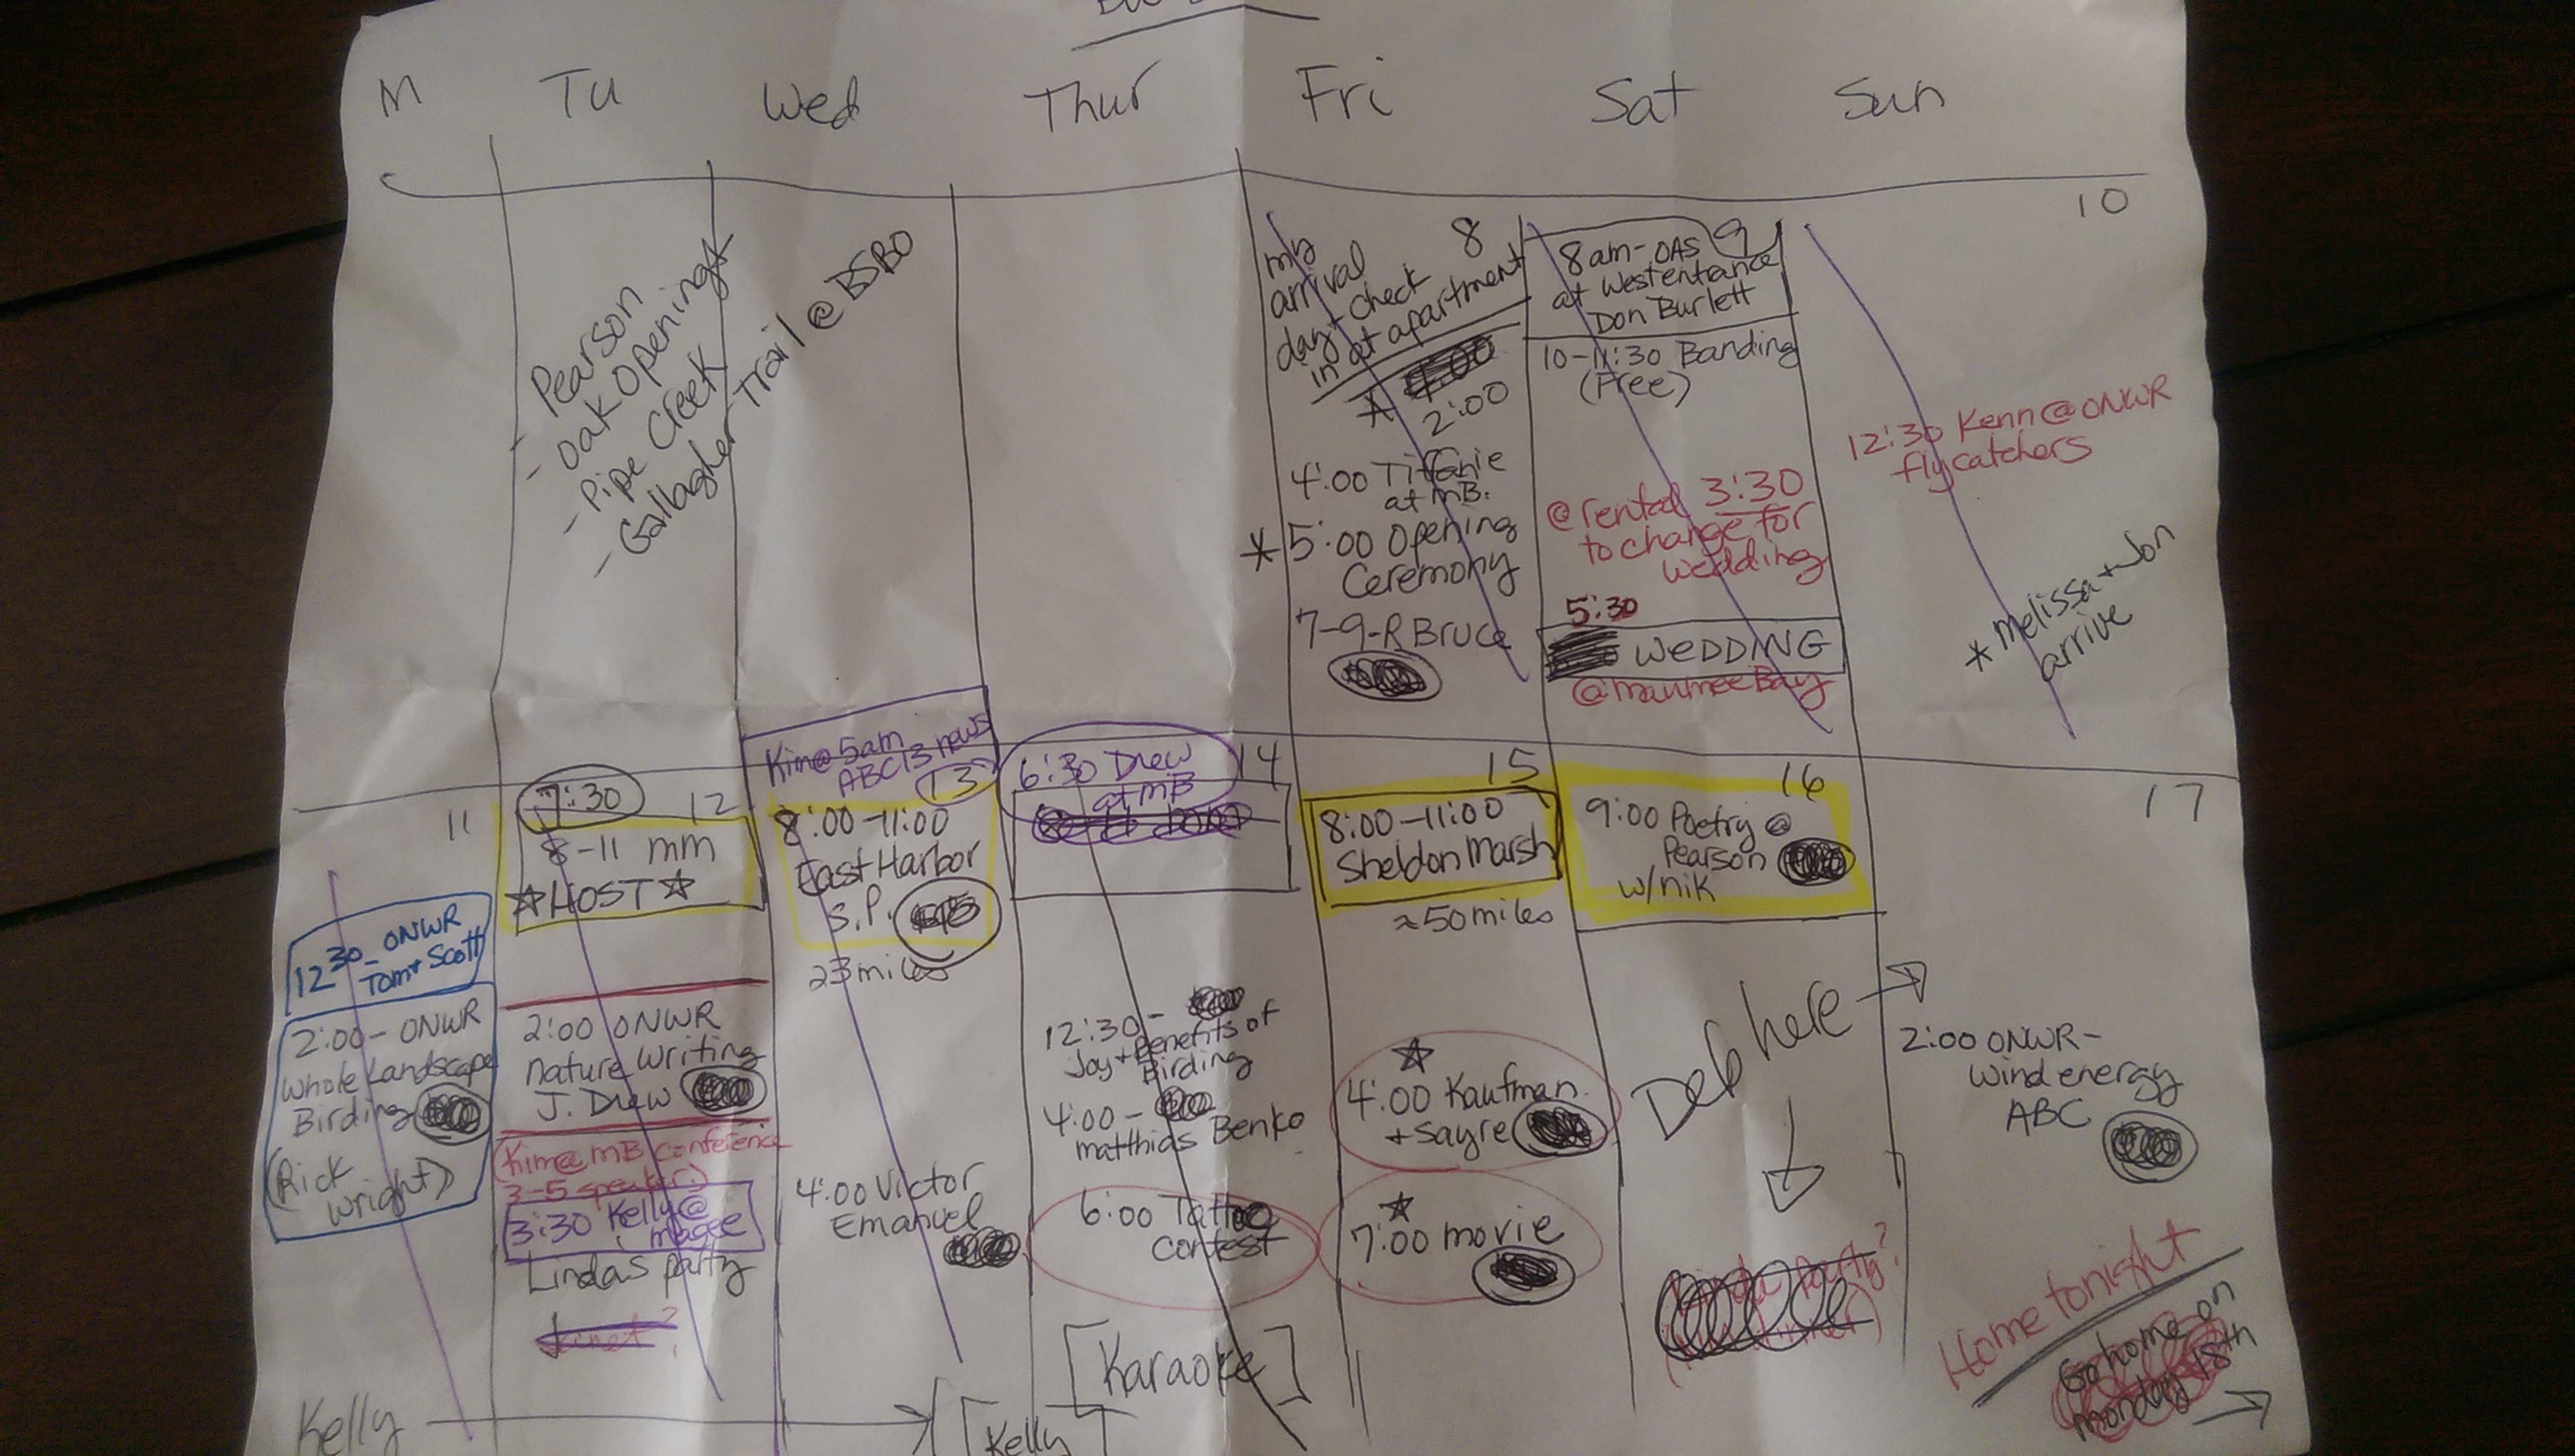 M Tu Wed Thur Fri Sat Sun
- Pearson
- Oak Openings
- Pipe Creek
- Gallagher Trail @ BSBO
8
my
arrival
day + check
in at apartment
* 2:00
4:00 Tiffanie
at MB.
* 5:00 Opening
Ceremony
7-9-R Bruce
9
8am-OAS
at West entrance
Don Burlett
10-11:30 Banding
(Free)
@rental 3:30
to change for
wedding
5:30
WEDDING
@maumee Bay
10
12:30 Kenn@ONWR
flycatchers
* Melissa + Jon
arrive
11
12 30- ONWR
Tom + Scott
2:00- ONWR
Whole Landscape
Birding
(Rick
Wright)
Kelly
7:30
12
8-11 mm
HOST
2:00 ONWR
Nature Writing
J. Drew
Kim@MB conference
3-5 speaker
3:30 Kelly@
magee
Linda's party
Kim@5am
ABC13 news
13
8:00-11:00
East Harbor
S.P.
23 miles
4:00 Victor
Emanuel
14
6:30 Drew
at MB
12:30-
Joy + Benefits of
Birding
4:00-
matthias Benko
6:00 Tattoo
Contest
[Karaoke]
[Kelly
15
8:00-11:00
Sheldon Marsh
≈50miles
4:00 Kaufman
+ Sayre
7:00 movie
16
9:00 Poetry @
Pearson
w/nik
Deb here
17
2:00 ONWR-
Wind energy
ABC
Home tonight
Go home on
monday 18th